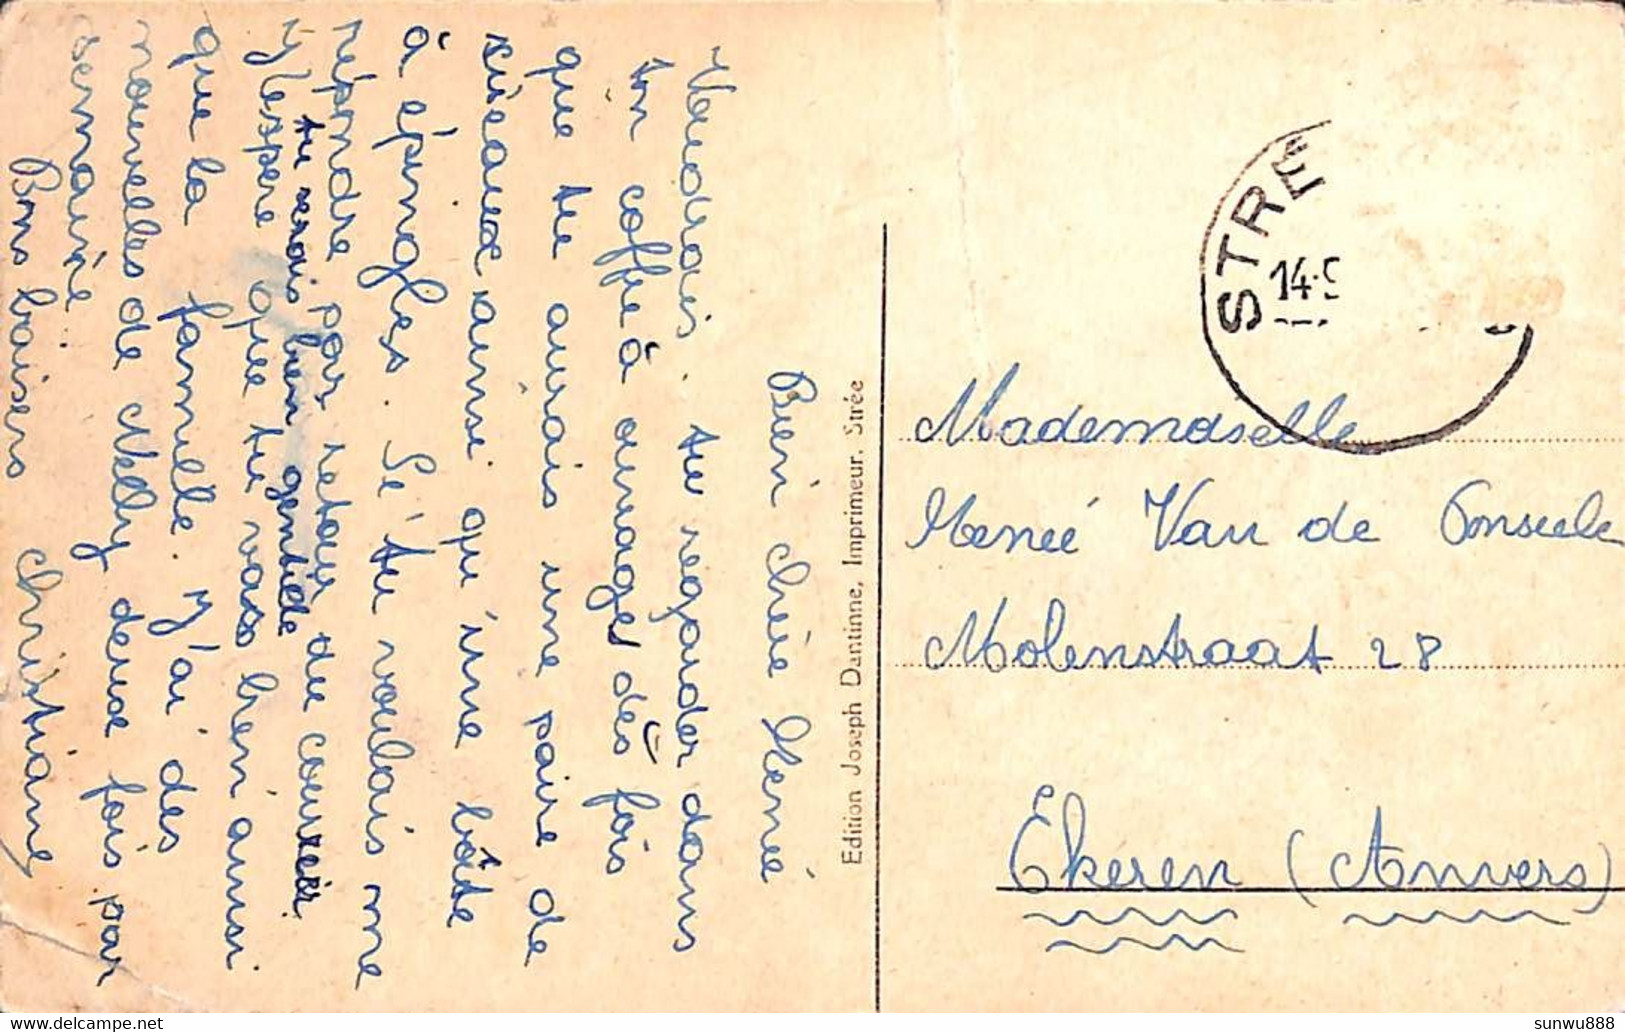 Bien chère Renée
Voudrais-tu regarder dans
ton coffre à ouvages dès fois
que tu aurais une paire de
ciseaux ainsi qu'une boîte
à épingles. Sé tu voulais me
répondre par retour du courrier
tu serais bien gentille
J'espère que tu vass bien ainsi
que la famille. J'ai des
nouvelles de Nelly deux fois par
semaine.
Bons baisers Christiane
Edition Joseph Dantinne, Imprimeur, Strée
STRÉE
14-9
Mademoiselle
Renée Van de Ponseele
Molenstraat 28
Ekeren (Anvers)
sunwu888